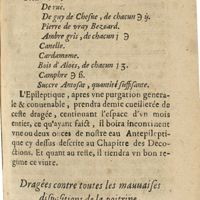 De rue.
De guy de Chesne, de chacun ℈ ij.
Pierre de vray Bezoard.
Ambre gris, de chacun j ℈
Canelle.
Cardamome.
Bois d'Aloës, de chacun 1 3.
Camphre ℈ 6.
Succre Antosat, quantité suffisante.
L'Epileptique, apres vne purgation genera-
le & conuenable, prendra demie cueillerée de
ceste dragée, continuant l'espace d'vn mois
entier, ce qu'ayant faict, il boira incontinent
vne ou deux onces de nostre eau Antepilepti-
que cy dessus descrite au Chapitre des Deco-
ctions. Et quant au reste, il tiendra vn bon re-
gime ce viure.
Dragées contre toutes les mauuaises
dispositions de la poitrine